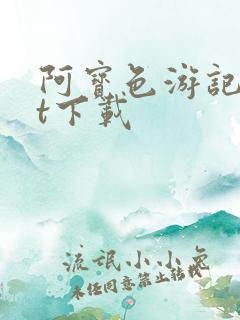 阿宝色游記
t下載
流氓小小兔
未经同意禁止转载